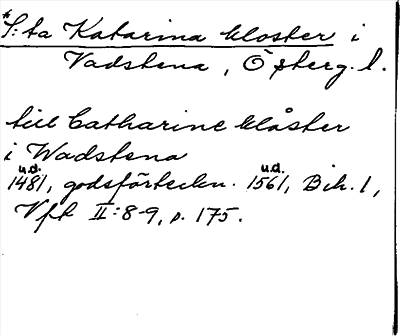 *S:ta Katarina kloster i
Vadstena, Östergl.
till Catharine klåster
i Wadstena
u.d. u.d.
1481, godsförteckn. 1561, Bih. 1,
Vft II:8-9, p. 175.